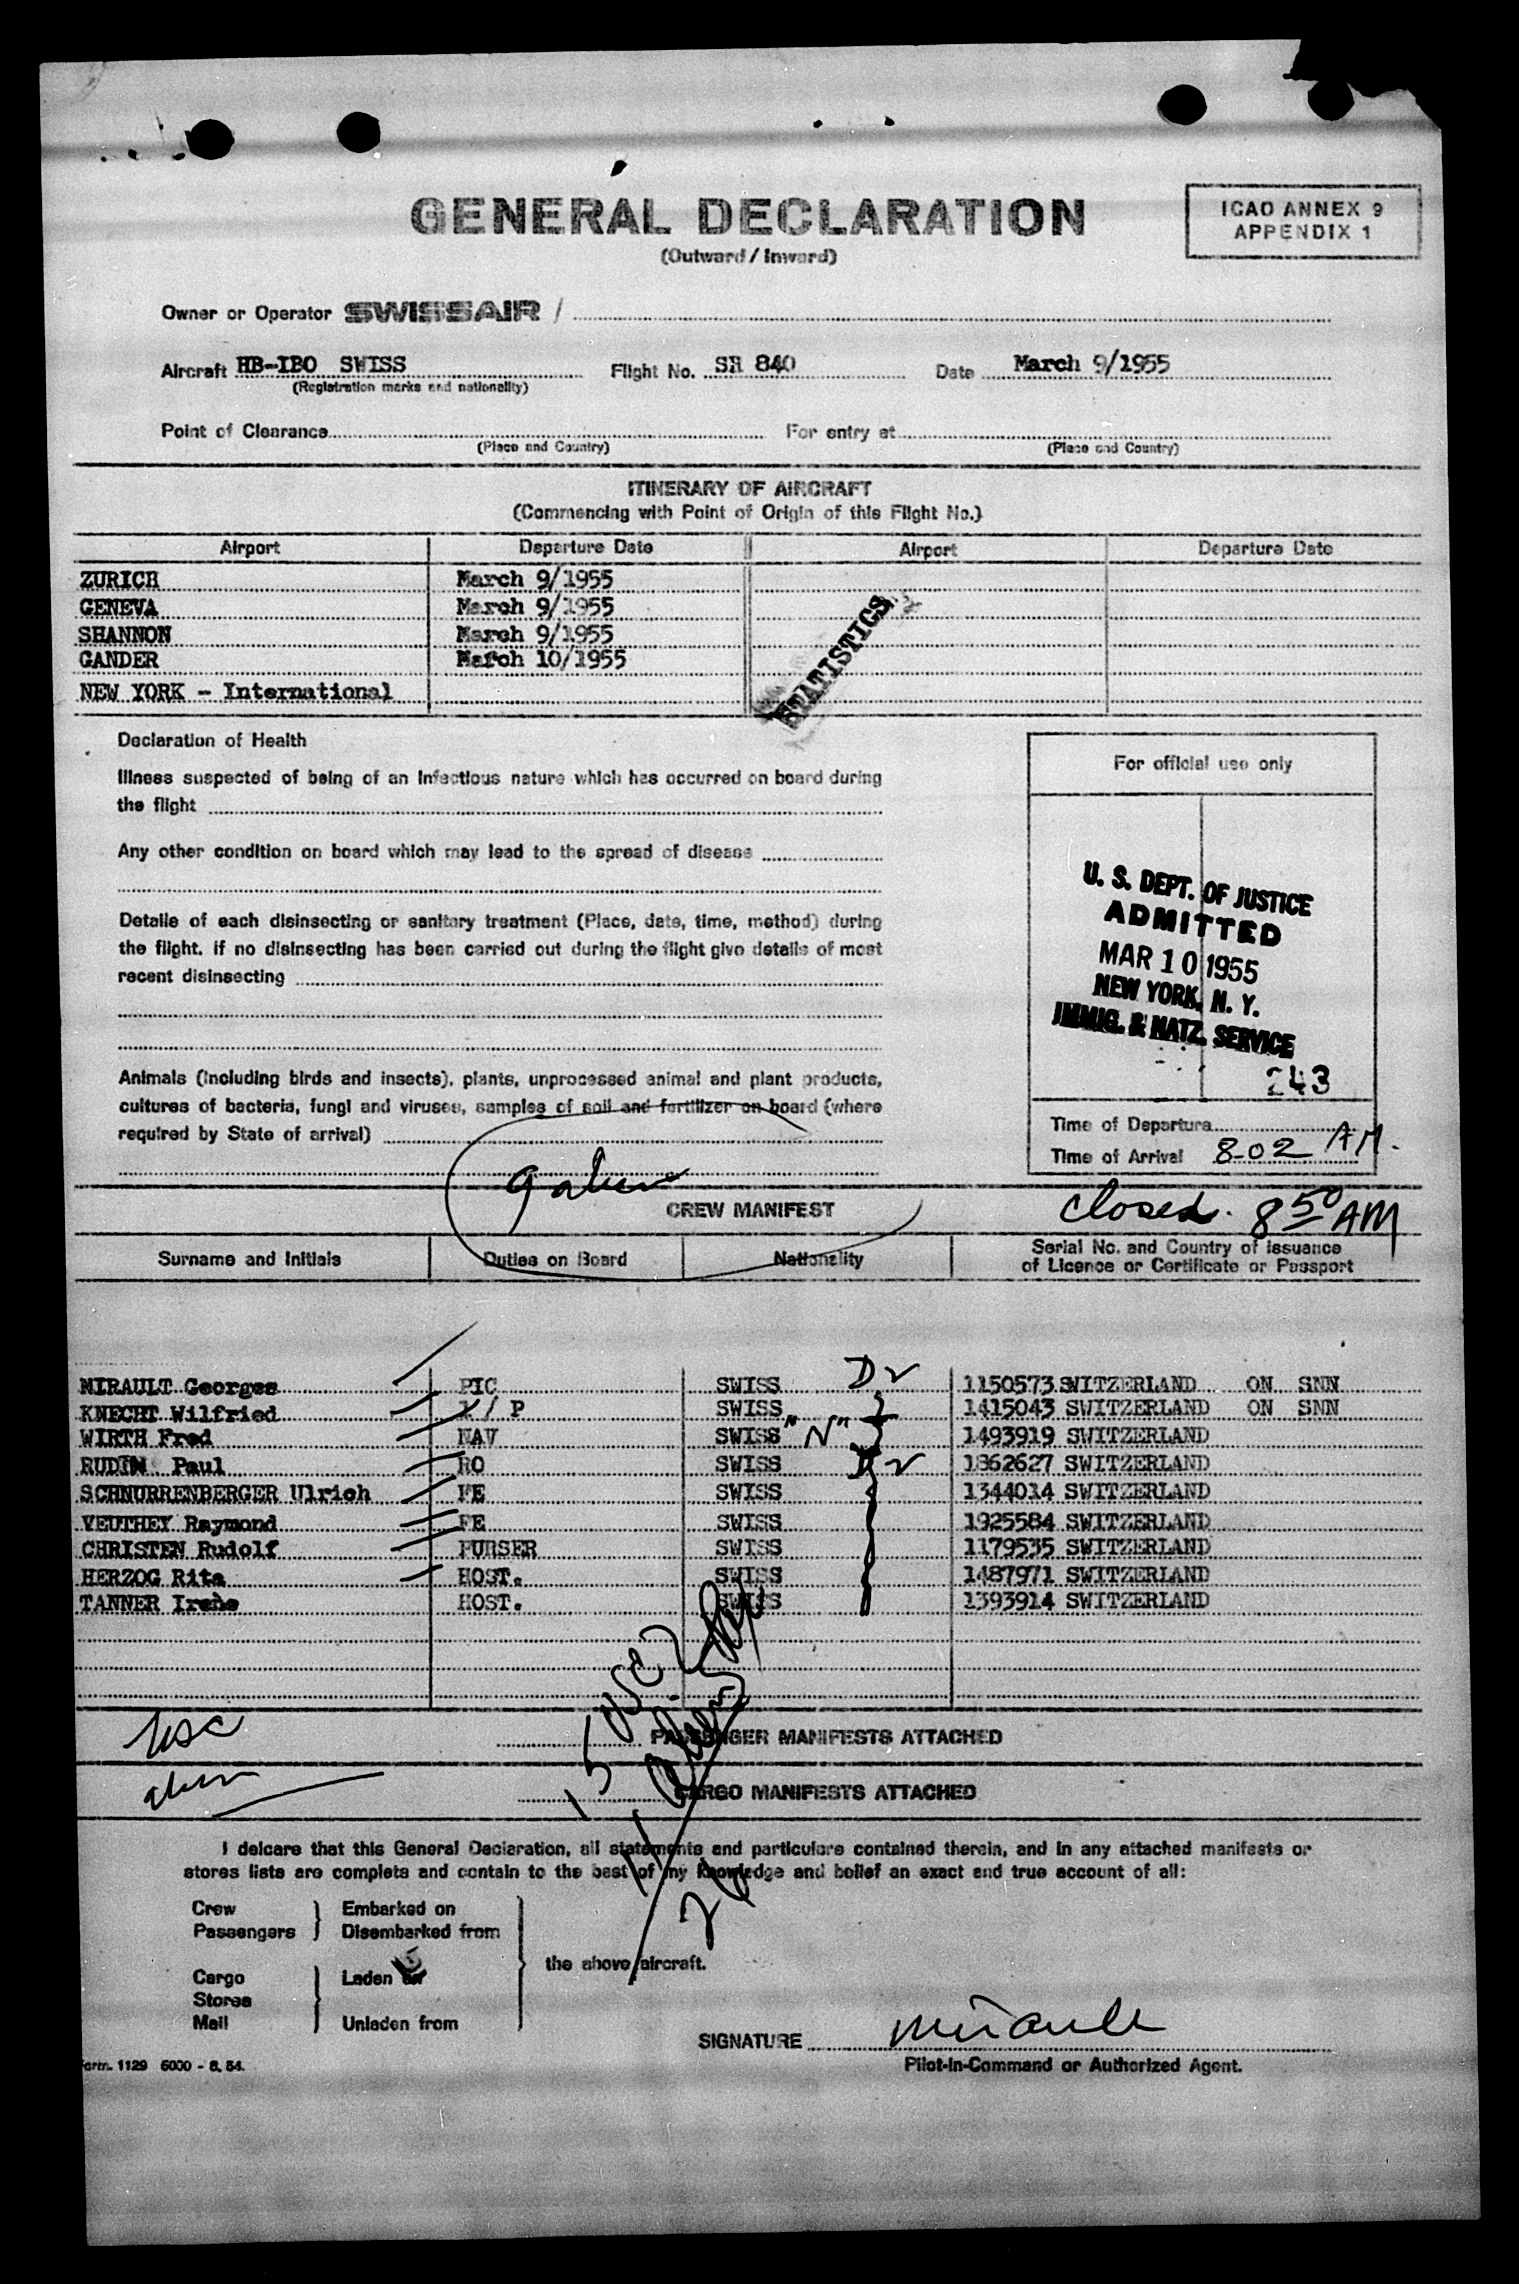 GENERAL DECLARATION
(Outward / Inward)
ICAO ANNEX 9
APPENDIX 1
Owner or Operator SWISSAIR /
Aircraft HB-IBO SWISS Flight No. SR 840 Date March 9/1955
(Registration marks and nationality)
Point of Clearance For entry at
(Place and Country) (Place and Country)
ITINERARY OF AIRCRAFT
(Commencing with Point of Origin of this Flight No.)
Airport Departure Date Airport Departure Date
ZURICH March 9/1955
GENEVA March 9/1955
SHANNON March 9/1955
GANDER March 10/1955
NEW YORK - International
STATISTICS
Declaration of Health
Illness suspected of being of an infectious nature which has occurred on board during
the flight
Any other condition on board which may lead to the spread of disease
Details of each disinsecting or sanitary treatment (Place, date, time, method) during
the flight. If no disinsecting has been carried out during the flight give details of most
recent disinsecting
Animals (including birds and insects), plants, unprocessed animal and plant products,
cultures of bacteria, fungi and viruses, samples of soil and fertilizer on board (where
required by State of arrival)
For official use only
U. S. DEPT. OF JUSTICE
ADMITTED
MAR 10 1955
NEW YORK, N. Y.
IMMIG. & NATZ. SERVICE
243
Time of Departure
Time of Arrival 8-02 AM.
closed. 8 50 AM
CREW MANIFEST
Surname and Initials Duties on Board Nationality Serial No. and Country of issuance
of Licence or Certificate or Passport
MIRAULT Georges PIC SWISS D 2 1150573 SWITZERLAND ON SNN
KNECHT Wilfried / P SWISS 1415043 SWITZERLAND ON SNN
WIRTH Fred NAV SWISS "N" 1493919 SWITZERLAND
RUDIN Paul RO SWISS 2 1362627 SWITZERLAND
SCHNURRENBERGER Ulrich FE SWISS 1344014 SWITZERLAND
VEUTHEY Raymond FE SWISS 1925584 SWITZERLAND
CHRISTEN Rudolf PURSER SWISS 1179535 SWITZERLAND
HERZOG Rita HOST. SWISS 1487971 SWITZERLAND
TANNER Irene HOST. SWISS 1393914 SWITZERLAND
15 USC 2
USC
PASSENGER MANIFESTS ATTACHED
CARGO MANIFESTS ATTACHED
I delcare that this General Declaration, all statements and particulars contained therein, and in any attached manifests or
stores lists are complete and contain to the best of my knowledge and belief an exact and true account of all:
Crew Embarked on
Passengers Disembarked from
the above aircraft.
Cargo Laden on
Stores
Mail Unladen from
SIGNATURE Mirault
Pilot-in-Command or Authorized Agent.
Form. 1129 6000 - 8, 54.